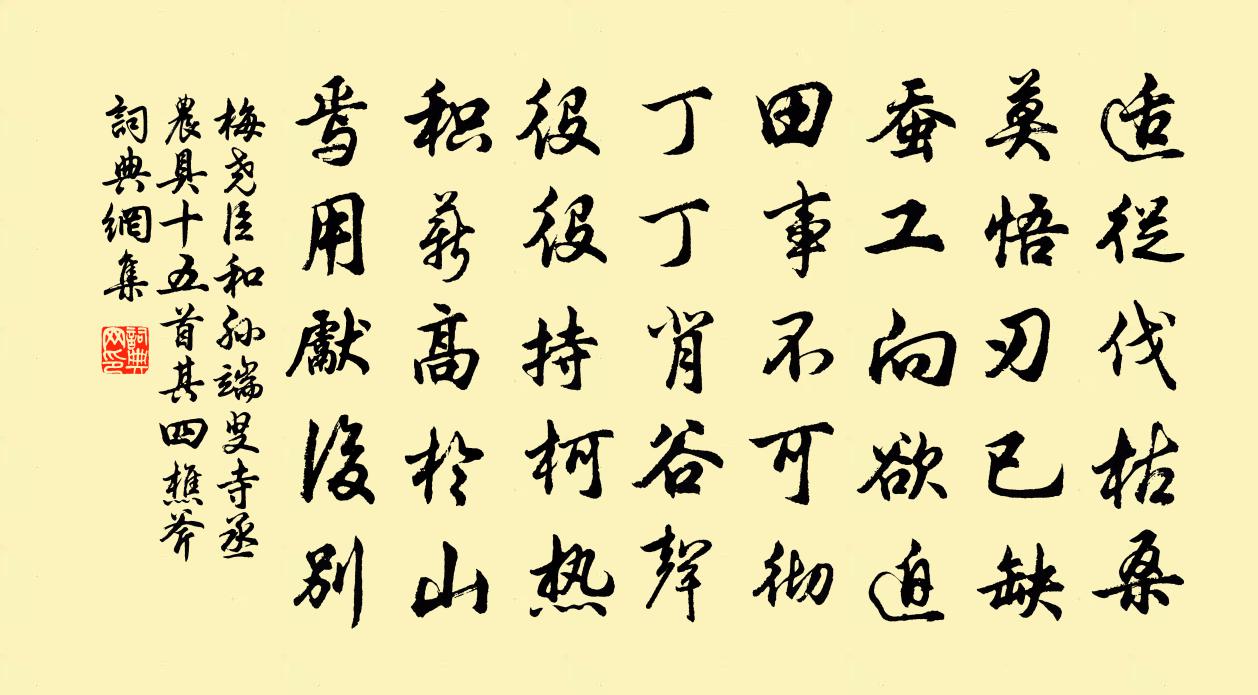 适從伐枯桑
莫悟刃已缺
蚕工向欲迫
田事不可彻
丁丁肖谷聲
役役持柯热
积薪高於山
焉用獻後别
梅尧臣和孙端叟寺丞
農具十五首其四樵斧
詞典網集
詞典网印